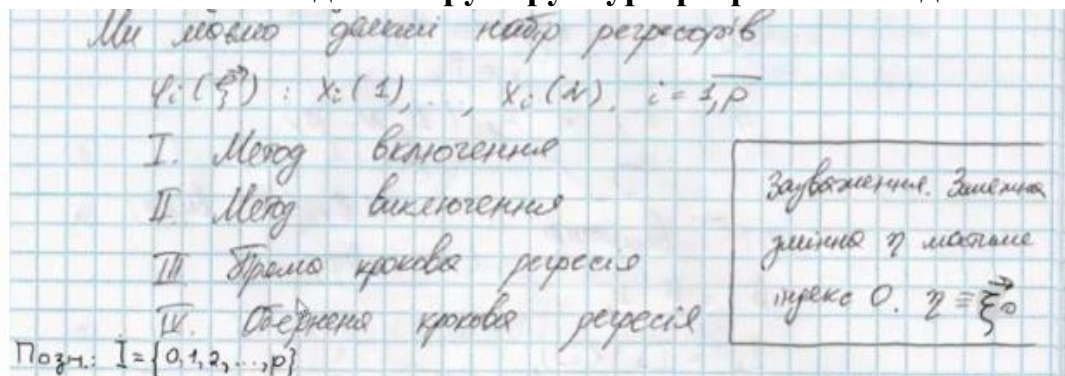 Ми маємо деякий набір регресорів
φᵢ(ξ⃗) : xᵢ(1), ..., xᵢ(N), i = 1,p
I. Метод включення
II Метод виключення
III Пряма крокова регресія
IV. Обернена крокова регресія
Зауваження. Залежна
змінна η матиме
індекс 0. η ≡ ξ⃗₀
Позн.: I = {0,1,2,...,p}